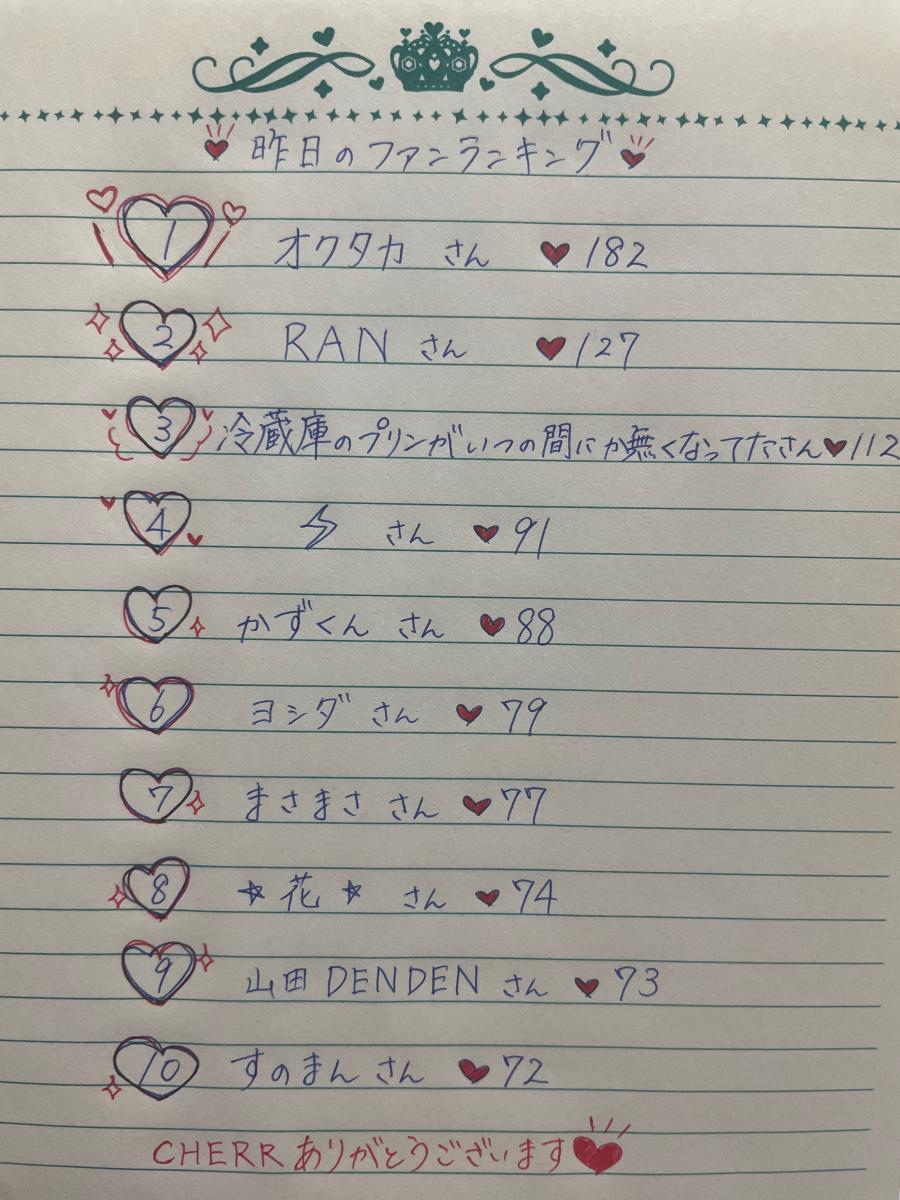 ♥昨日のファンランキング♥
1 オクタカ さん ♥182
2 RAN さん ♥127
3 冷蔵庫のプリンがいつの間にか無くなってたさん♥112
4 ⚡ さん ♥91
5 かずくん さん ♥88
6 ヨシダ さん ♥79
7 まさまさ さん ♥77
8 ★花★ さん ♥74
9 山田DENDEN さん ♥73
10 すのまん さん ♥72
CHERRありがとうございます♥